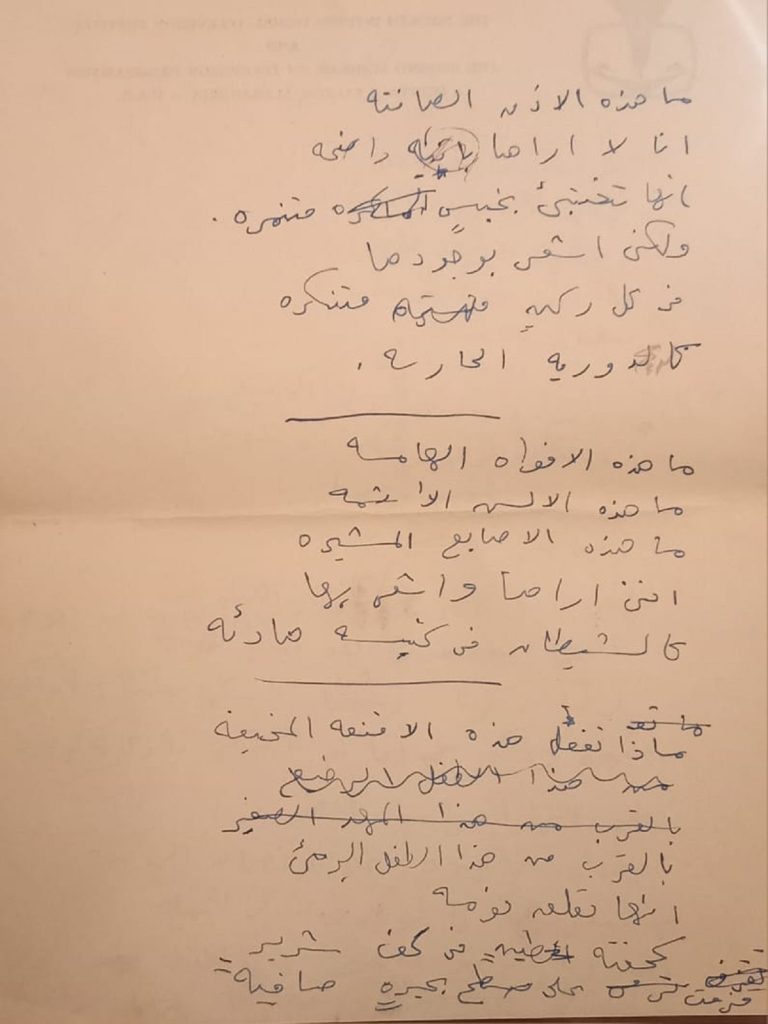 ما هذه الاذن الصامته
انا لا اراها واضحه
انها تختبئ بخبسٍ متنمره .
ولكني اشعر بوجودها
في كل ركنٍ متنكره
كالدوريه الحارسه .
ما هذه الافواه الهامسه
ما هذه الالسن الآثمه
ما هذه الاصابع المشيره
انني اراها واشعر بها
كالشيطان في كنيسه هادئه
ماذا تفعل هذه الاقنعه المخيفه
من هذا الطفل الرضيع
بالقرب من هذا المهد الصغير
بالقرب من هذا الطفل البرئ
انها تقلق نومه
كحفنته طين في كف شرير
على سطح بحيره صافيه